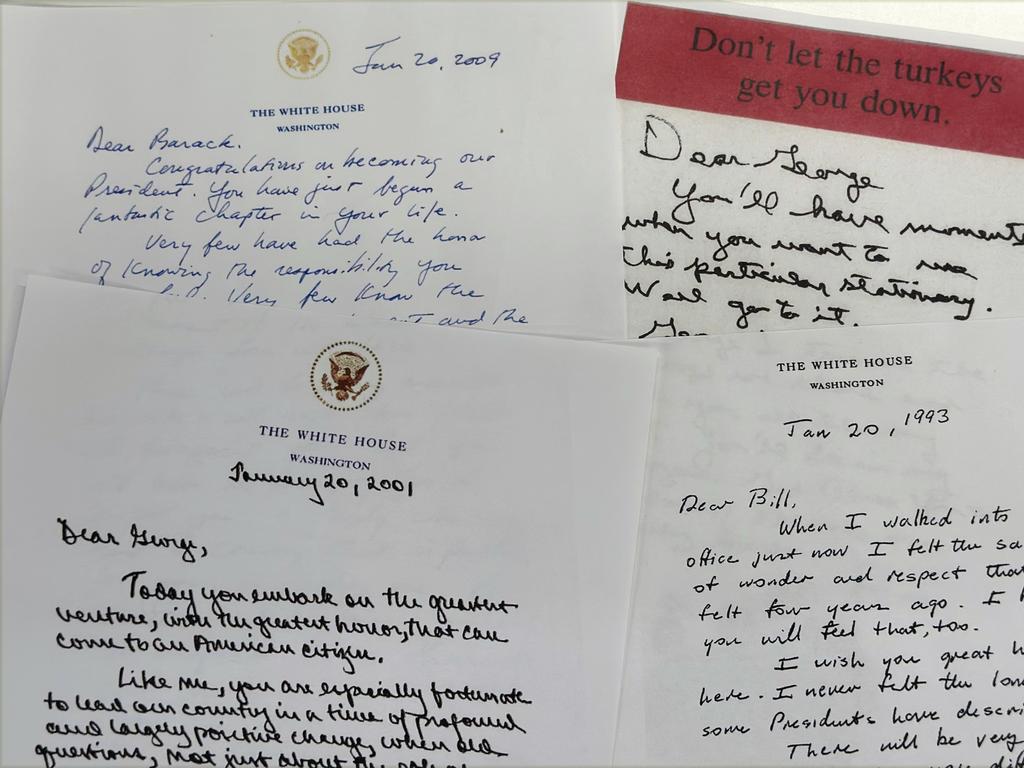 Jan 20, 2009
THE WHITE HOUSE
WASHINGTON
Dear Barack.
Congratulations on becoming our
President. You have just begun a
fantastic chapter in your life.
Very few have had the honor
of knowing the responsibility you
Very few know the
and the
Don't let the turkeys
get you down.
Dear George
You'll have moments
when you want to use
this particular stationary.
Well go to it.
THE WHITE HOUSE
WASHINGTON
January 20, 2001
Dear George,
Today you embark on the greatest
venture, with the greatest honor, that can
come to an American citizen.
Like me, you are especially fortunate
to lead our country in a time of profound
and largely positive change, when old
questions, not just about the role of
THE WHITE HOUSE
WASHINGTON
Jan 20, 1993
Dear Bill,
When I walked into
office just now I felt the sa
of wonder and respect that
felt four years ago. I
you will feel that, too.
I wish you great h
here. I never felt the lon
some Presidents have descri
There will be very